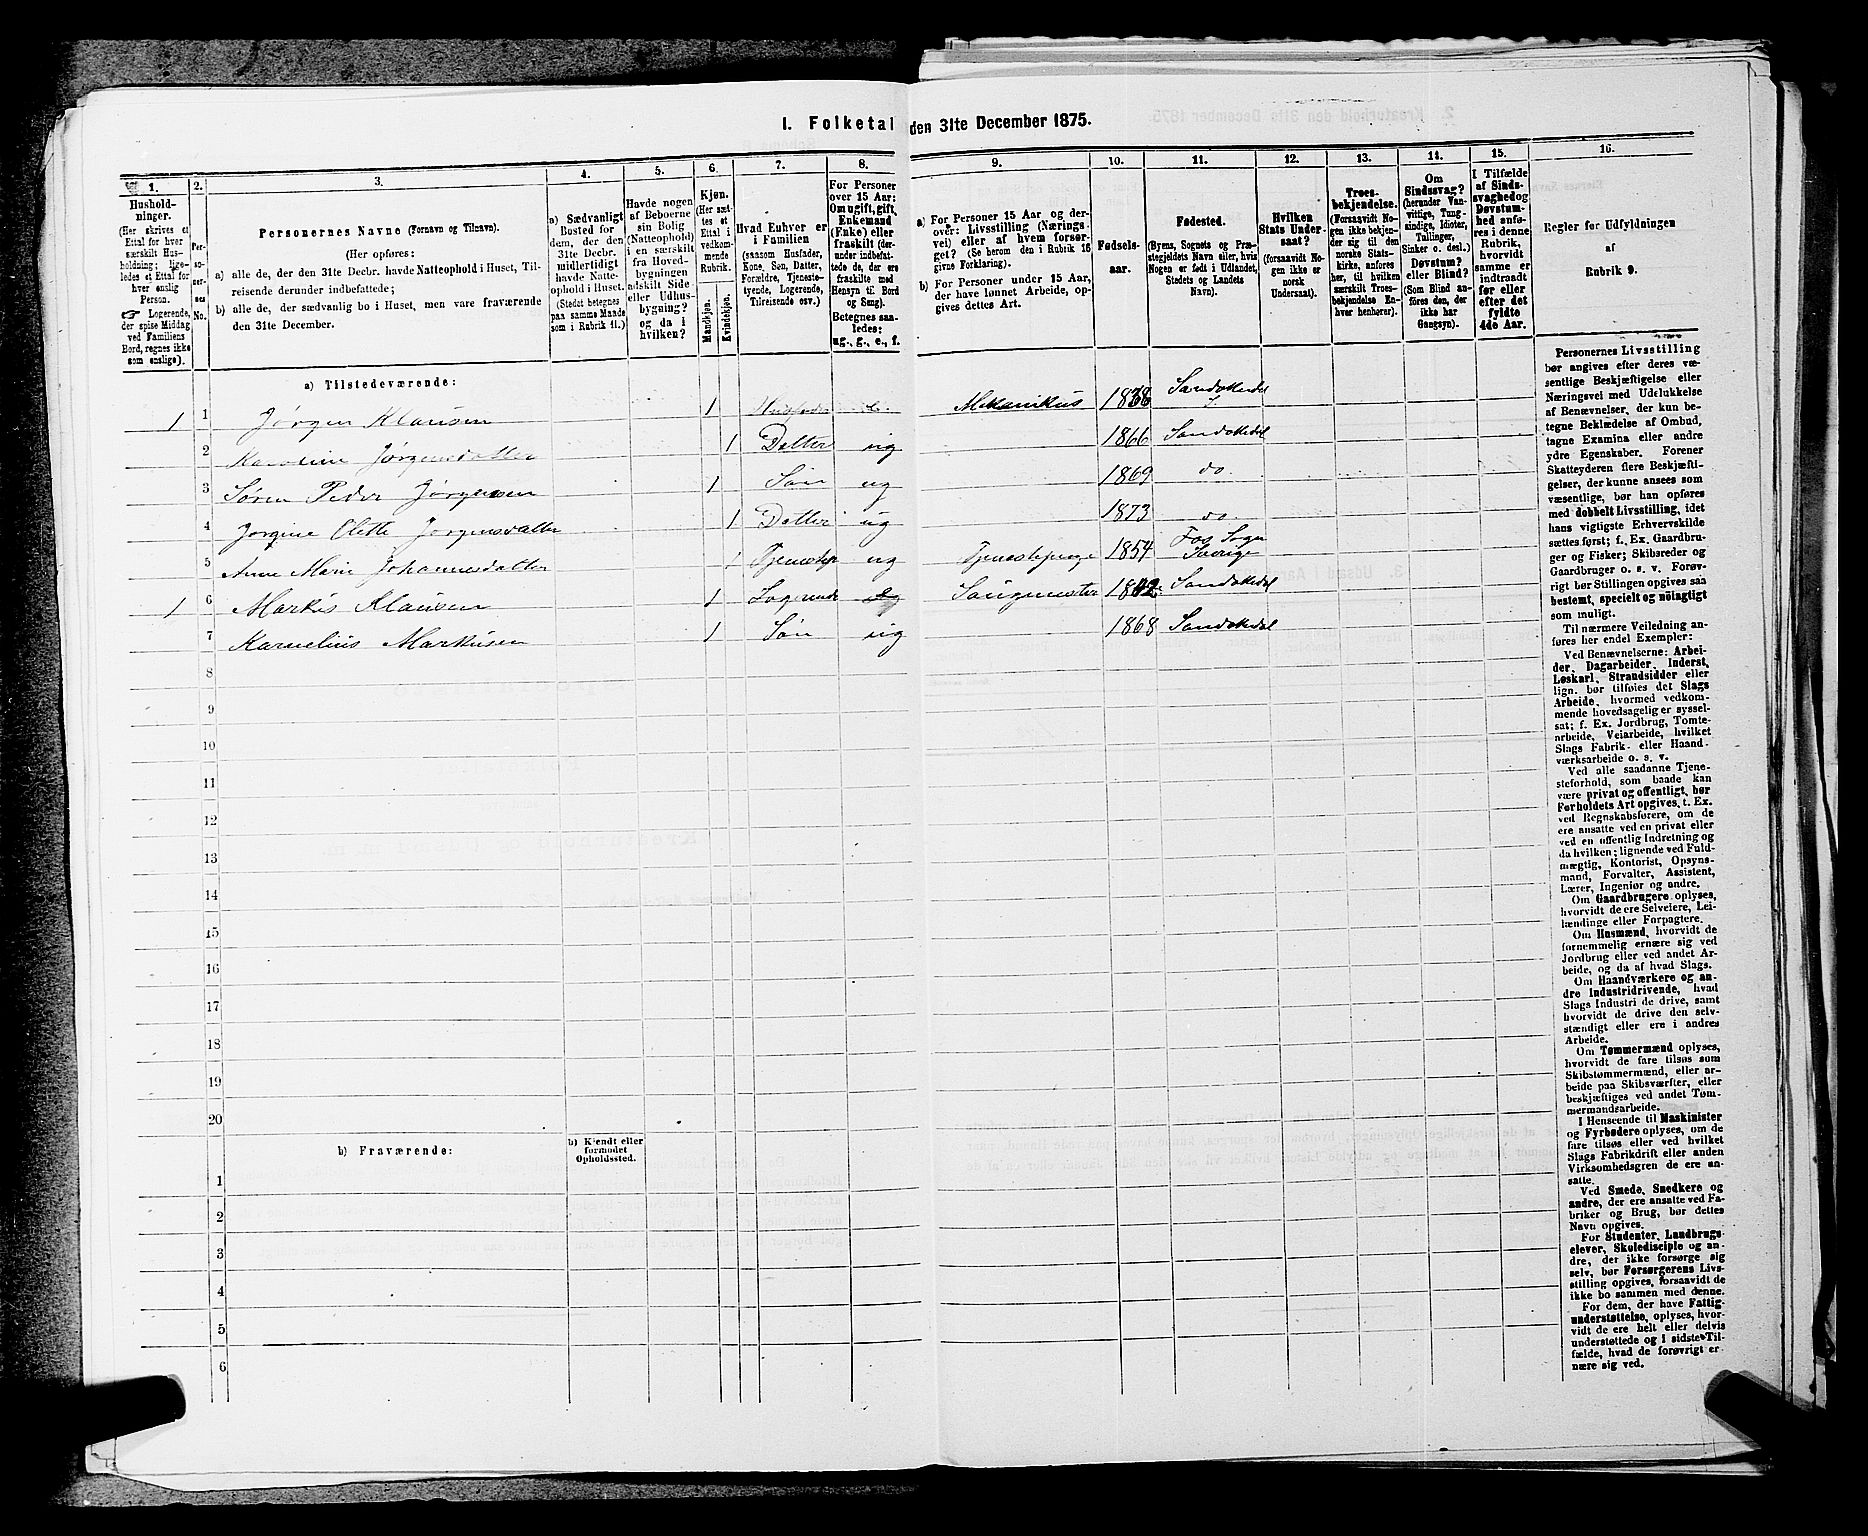 I. Folketal den 31te December 1875.
1. 2. 3. 4. 5. 6. 7. 8. 9. 10. 11. 12. 13. 14. 15. 16.
Husholdninger.
(Her skrives et
Ettal for hver
særskilt Husholdning;
ligeledes
et Ettal for
hver enslig
Person.
☞ Logerende,
der spise Middag
ved Familiens
Bord, regnes ikke
som enslige).
Personernes
No.
Personernes Navne (Fornavn og Tilnavn).
(Her opføres:
a) alle de, der den 31te Decbr. havde Natteophold i Huset, Tilreisende
derunder indbefattede;
b) alle de, der sædvanlig bo i Huset, men vare fraværende
den 31te December.
a) Sædvanligt
Bosted for
dem, der den
31te Decbr.
midlertidigt
havde Natteophold
i Huset.
(Stedet betegnes
paa samme Maade
som i Rubrik 11.)
Havde nogen
af Beboerne
sin Bolig
(Natteophold)
i en særskilt
fra Hovedbygningen
adskilt Side
eller Udhusbygning?
og da i
hvilken?
Kjøn.
(Her sættes
et
Ettal i
vedkommende
Rubrik.
Mandkjøn.
Kvindekjøn.
Hvad Enhver er
i Familien
(saasom Husfader,
Kone, Søn, Datter,
Forældre, Tjenestetyende,
Logerende,
Tilreisende osv.)
For Personer
over 15 Aar:
Om ugift, gift,
Enkemand
(Enke) eller
fraskilt (derunder
indbefattede
de, der ere
fraskilte med
Hensyn til Bord
og Seng).
Betegnes saaledes:
ug., g., e., f.
a) For Personer 15 Aar og derover:
Livsstilling (Næringsvei)
eller af hvem forsørget?
(Se herom den i Rubrik 16
givne Forklaring).
b) For Personer under 15 Aar,
der have lønnet Arbeide, opgives
dettes Art.
Fødselsaar.
Fødested.
(Byens, Sognets og Præstegjeldets
Navn eller, hvis
Nogen er født i Udlandet,
Stedets og Landets
Navn).
Hvilken
Stats Undersaat?
(forsaavidt Nogen
ikke er
norsk
Undersaat).
Troesbekjendelse.
(Forsaavidt Nogen
ikke bekjender
sig til den
norske Statskirke,
anføres
her, til hvilken
særskilt Troesbekjendelse
Enhver
henhører).
Om
Sindssvag?
(herunder Vanvittige,
Tungsindige,
Idioter,
Tullinger,
Sinker o. desl.)
Døvstum?
eller Blind?
(Som Blind anføres
den, der
ikke har
Gangsyn).
I Tilfælde
af Sindssvaghed
og
Døvstumhed
anføres
i denne
Rubrik,
hvorvidt
samme er
indtraadt
før eller
efter det
fyldte
4de Aar.
Regler for Udfyldningen
af
Rubrik 9.
a) Tilstedeværende:
1 1 Jørgen Klausen 1 Husfader e. Mekanikus 1838 Sandøkedal
2 Karoline Jørgensdatter 1 Datter ug 1866 Sandøkedal
3 Søren Peder Jørgensen 1 Søn ug 1869 do.
4 Jørgine Olette Jørgensdatter 1 Datter ug 1873 do.
5 Anne Marie Johannesdatter 1 ug 1854 Fos Sogn Sverige
1 6 Markus Klausen 1 Logerende Sandøkedal
7 Karnelius Markusen 1 Søn ug 1868 Sandøkedal
8
9
10
11
12
13
14
15
16
17
18
19
20
b) Fraværende:
b) Kjendt eller
formodet
Opholdssted.
1
2
3
4
5
6
Personernes Livsstilling
bør angives efter deres væsentlige
Beskjæftigelse eller
Næringsvei med Udelukkelse
af Benævnelser, der kun betegne
Beklædelse af Ombud,
tagne Examina eller andre
ydre Egenskaber. Forener
Skatteyderen flere Beskjæftigelser,
der kunne ansees som
væsentlige, bør han opføres
med dobbelt Livsstilling, idet
hans vigtigste Erhvervskilde
sættes først; f. Ex. Gaardbruger
og Fisker; Skibsreder og
Gaardbruger o. s. v. Forøvrigt
bør Stillingen opgives saa
bestemt, specielt og nøiagtigt
som muligt.
Til nærmere Veiledning anføres
her endel Exempler:
Ved Benævnelserne: Arbeider,
Dagarbeider, Inderst,
Løskarl, Strandsidder eller
lign. bør tilføies det Slags
Arbeide, hvormed vedkommende
hovedsagelig er sysselsat;
f. Ex. Jordbrug, Tomtearbeide,
Veiarbeide, hvilket
Slags Fabrik- eller Haandværksarbeide
o. s. v.
Ved alle saadanne Tjenesteforhold,
som baade kan
være privat og offentligt, bør
Forholdets Art opgives, t. Ex.
ved Regnskabsførere, om de
ere ansatte ved en privat eller
ved en offentlig Indretning og
da hvilken; lignende ved Fuldmægtig,
Kontorist, Opsynsmand,
Forvalter, Assistent,
Lærer, Ingeniør og andre.
Om Gaardbrugere oplyses,
hvorvidt de ere Selveiere, Leilændinge
eller Forpagtere.
Om Husmænd, hvorvidt de
fornemmelig ernære sig ved
Jordbrug eller ved andet Arbeide,
og da af hvad Slags.
Om Haandværkere og andre
Industridrivende, hvad
Slags Industri de drive, samt
hvorvidt de drive den selvstændigt
eller ere i andres
Arbeide.
Om Tømmermænd oplyses,
hvorvidt de fare tilsøs som
Skibstømmermænd, eller arbeide
paa Skibsværfter, eller
beskjæftiges ved andet Tømmermandsarbeide.
I Henseende til Maskinister
og Fyrbødere oplyses, om de
fare tilsøs eller ved hvilket
Slags Fabrikdrift eller anden
Virksomhedsgren de ere ansatte.
Ved Smede, Snedkere og
andre, der ere ansatte ved Fabriker
og Brug, bør dettes
Navn opgives.
For Studenter, Landbrugselever,
Skoledisciple og andre,
der ikke forsørge sig
selv, bør Forsørgerens Livsstilling
opgives, forsaavidt de
ikke bo sammen med denne.
For dem, der have Fattigunderstøttelse,
oplyses, hvorvidt
de ere helt eller delvis
understøttede og i sidste Tilfælde,
hvad de forøvrigt ernære
sig ved.